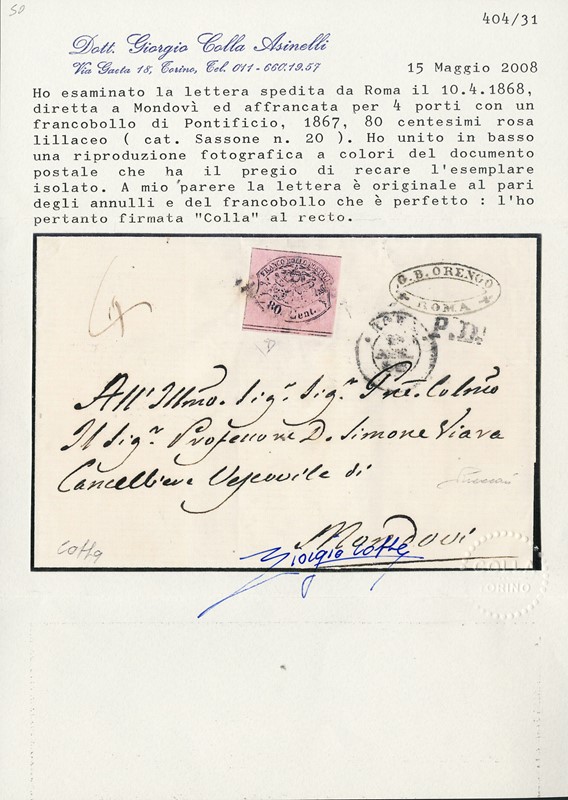 50
404/31
Dott. Giorgio Colla Asinelli
Via Gaeta 18, Torino, Tel. 011-660.19.57
15 Maggio 2008
Ho esaminato la lettera spedita da Roma il 10.4.1868,
diretta a Mondovì ed affrancata per 4 porti con un
francobollo di Pontificio, 1867, 80 centesimi rosa
lillaceo ( cat. Sassone n. 20 ). Ho unito in basso
una riproduzione fotografica a colori del documento
postale che ha il pregio di recare l'esemplare
isolato. A mio parere la lettera è originale al pari
degli annulli e del francobollo che è perfetto : l'ho
pertanto firmata "Colla" al recto.
80 Cent.
G. B. ORENGO
ROMA
ROMA
P.D.
All' Illmo. Sigr. Sigr. Pne. Colmo
Il Sigr. Professore D. Simone Viara
Cancelliere Vescovile di
Mondovi
Colla
Giorgio Colla
COLLA
TORINO